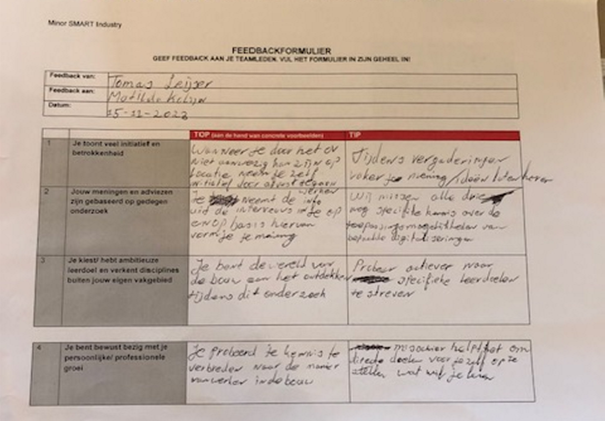 Minor SMART Industry
FEEDBACKFORMULIER
GEEF FEEDBACK AAN JE TEAMLEDEN. VUL HET FORMULIER IN ZIJN GEHEEL IN!
Feedback van: Tomas Leijser
Feedback aan: Matilde
Datum: 15-11-2023
TOP (aan de hand van concrete voorbeelden)
TIP
1 Je toont veel initiatief en
betrokkenheid
Wanneer je door het ov
niet aanwezig kan zijn op
locatie neem je zelf
initiatief door
Tijdens vergaderingen
vaker je mening/ideën laten horen
2 Jouw meningen en adviezen
zijn gebaseerd op gedegen
onderzoek
Je neemt de info
uit de interviews
en op basis hiervan
vorm je je mening
Wij missen alle drie
nog specifieke kennis over de
toepassingsmogelijkheden van
bepaalde digitaliseringen
3 Je kiest/ hebt ambitieuze
leerdoel en verkent disciplines
buiten jouw eigen vakgebied
Je bent de wereld van
de bouw aan het ontdekken
tijdens dit onderzoek
Probeer actiever naar
specifieke leerdoelen
te streven
4 Je bent bewust bezig met je
persoonlijke/ professionele
groei
Je probeerd je kennis te
verbreden naar de manier
van werken in de bouw
misschien helpt het om
directe doelen voor jezelf op te
stellen wat wil je leren